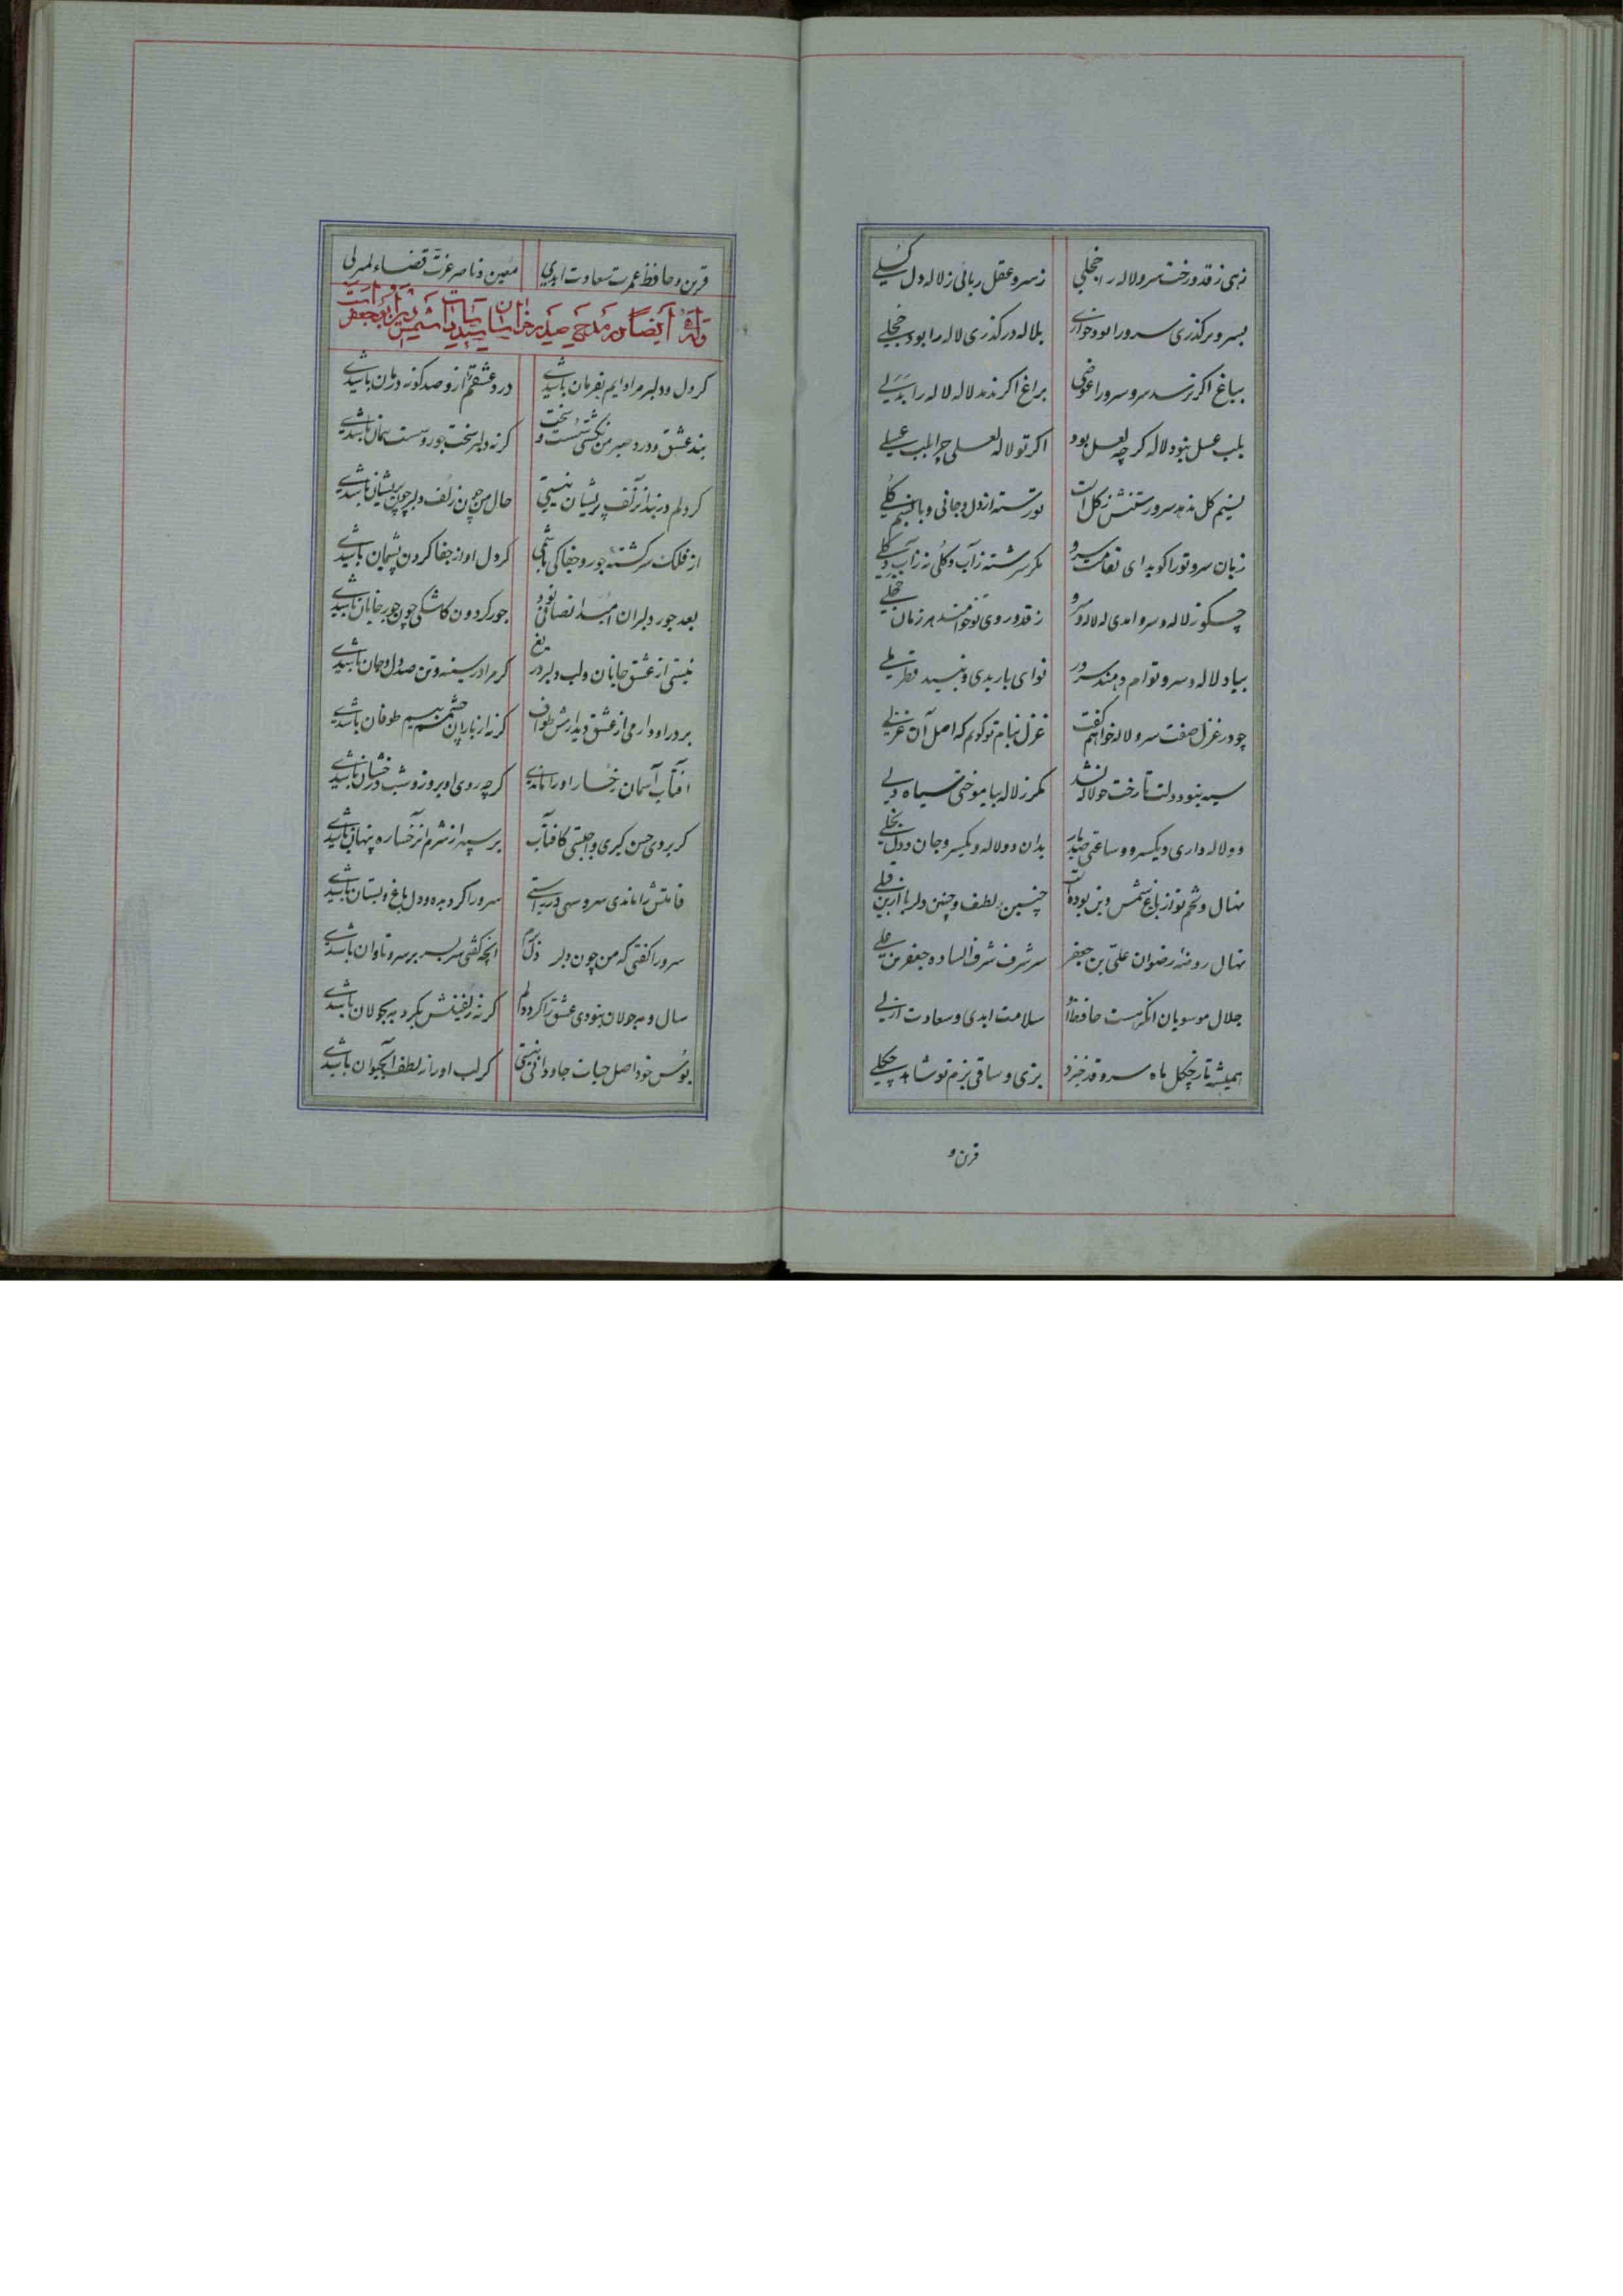 زهی ز قد و رخت سرو و لاله را خجلی
ز سرو عقل ربائی ز لاله دل کسلی
بسرو بر کذری سرو را بود خواری
بلاله در کذری لاله را بود خجلی
بباغ اکر نرسد سرو سرو را عوضی
براغ اکر ندمد لاله لاله را بدلی
بلب عسل نبود لاله کر چه لعل بود
اکر تو لاله لعلی چرا بلب عسلی
نسیم کل ندهد سرو رستنش ز کل است
تو رسته از دل و جانی و با نسیم کلی
زبان سرو تو را کوید ای
مکر سرشته ز آب و کلی نه ز آب و کلی
ز قد و روی تو خواهند هر زمان
بیاد لاله و سرو توام دهند سرور
نوای باربدی و نبید قطربلی
چو در غزل صفت سرو و لاله خواهم کفت
غزل بنام تو کویم که اصل آن غزلی
سیه نبود دلت تا رخت چو لاله نشد
مکر ز لاله بیاموختی سیاه دلی
دو لاله داری و یک سرو و ساعتی صد بار
بدان دو لاله و یک سرو جان و دل بخلی
نهال و تخم تو از باغ شمس دین بوده است
چنین لطف و چنین دلربا از این قبلی
نهال روضه رضوان علی بن جعفر
سر شرف شرف الساده جعفر بن علی
جلال موسویان انکه هست حافظ او
سلامت ابدی و سعادت ازلی
همیشه تا ز چکل ماه سرو قد خیزد
بزی و ساقی بزم تو شاهد چکلی
قرین و
قرین و حافظ عمرت سعاوت ابدی
معین و ناصر عزت قضاء لم یزلی
وله ایضا در مدح صدر خراسان سید السادات شمس الدین ابو جعفر
کر دل و دلبر مرا دایم بفرمان باشدی
درد عشقم را ازو صد کونه درمان باشدی
بند عشق و درد صبر من نکشتی سست و سخت
کر نه دلبر سخت جور و سست پیمان باشدی
کر دلم در بند آن زلف پریشان نیستی
حال من چون زلف دلبر چون پریشان باشدی
از فلک سرکشته جور و جفا کی باشمی
کر دل او از جفا کردن پشیمان باشدی
بعد جور دلبران امید انصافی بود
جور کردون کاشکی چون جور جانان باشدی
نیستی از عشق جانان دل و دلبر دریغ
کر مرا در سینه و تن صد دل و جان باشدی
بر در او دارمی از عشق دیدارش طواف
کر نه از باران چشمم بیم طوفان باشدی
آفتاب آسمان رخسار او را ماندی
کر چه روی او بروز و شب درخشان باشدی
کر بروی حسن کبری واجبستی کافتاب
بر سپهر از شرم آن رخساره پنهان باشدی
قامتش را ماندی سرو سهی در راستی
سرو را کر دیده و دل باغ و بستان باشدی
سرو را کفتی که من چون دلبر
انچه کفتی سر بسر بر سرو تاوان باشدی
سال و مه جولان نبودی عشق را کرد دلم
کر نه زلفینش بکرد مه بجولان باشدی
بوس خود اصل حیات جاودانی نیستی
کر لب او را ز لطف آب حیوان باشدی